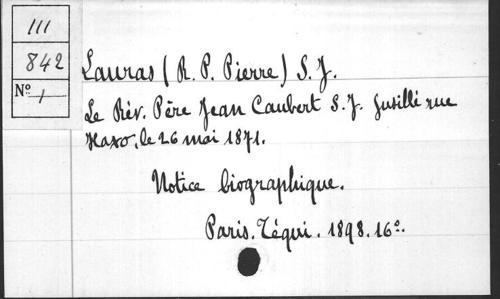 III
842
Nº 1
Lauras (R. P. Pierre) S. J.
Le Rév. Père Jean Caubert S. J. fusillé rue
Haxo, le 26 mai 1871.
Notice biographique.
Paris. Téqui. 1898. 16º.